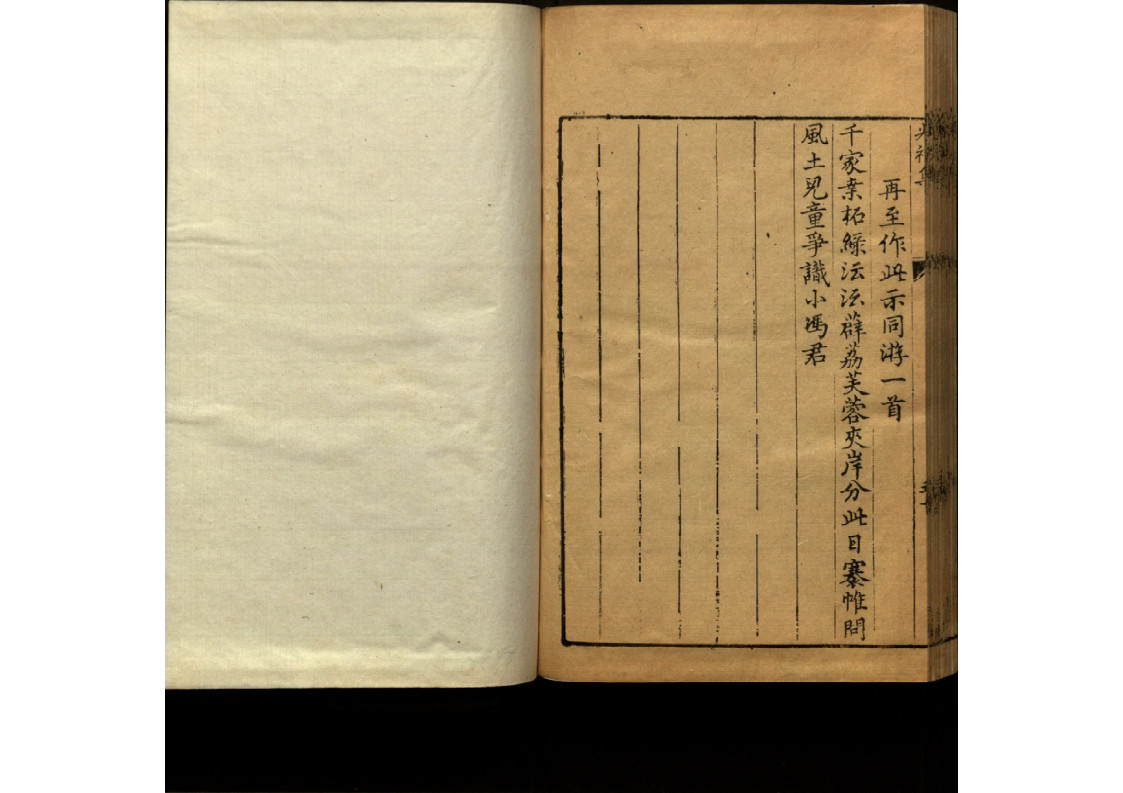 再至作此示同游一首
千家桒柘綠沄沄薜荔芙蓉夾岸分此日褰帷問
風土兒童爭識小馮君